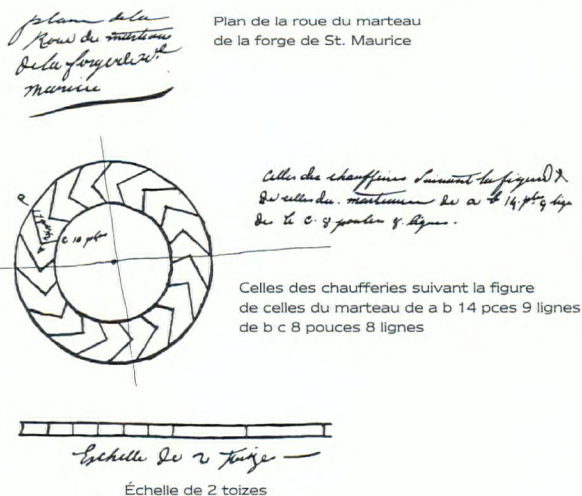 plan de la
Roue du marteau
De la forge de St
maurice
Plan de la roue du marteau
de la forge de St. Maurice
Celles des chaufferies suivant la figure
De celles du marteau de a b 14 pces 9 lignes
De b c 8 pouces 8 lignes.
P
c 10 pces
Celles des chaufferies suivant la figure
de celles du marteau de a b 14 pces 9 lignes
de b c 8 pouces 8 lignes
Echelle De 2 Toizes
Échelle de 2 toizes